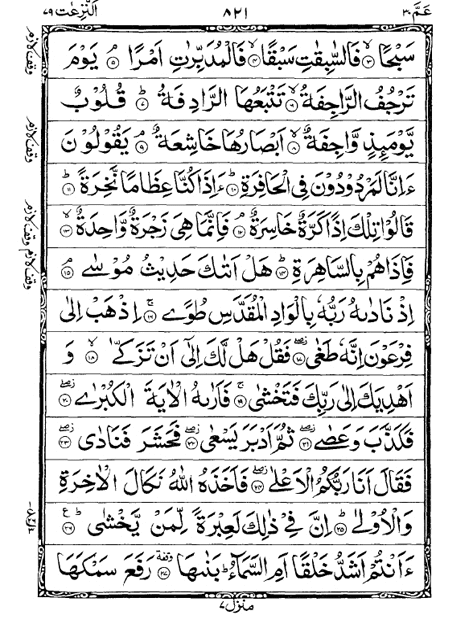 عَمَّ ٣٠ ٨٢١ اَلنّٰزِعٰت ٧٩
سَبْحًا ۙ﴿٣﴾ فَالسّٰبِقٰتِ سَبْقًا ۙ﴿٤﴾ فَالْمُدَبِّرٰتِ اَمْرًا ۘ﴿٥﴾ يَوْمَ
تَرْجُفُ الرَّاجِفَةُ ۙ﴿٦﴾ تَتْبَعُهَا الرَّادِفَةُ ؕ﴿٧﴾ قُلُوْبٌ
يَّوْمَىِٕذٍ وَّاجِفَةٌ ۙ﴿٨﴾ اَبْصَارُهَا خَاشِعَةٌ ۘ﴿٩﴾ يَقُوْلُوْنَ
ءَاِنَّا لَمَرْدُوْدُوْنَ فِى الْحَافِرَةِ ؕ﴿١٠﴾ ءَاِذَا كُنَّا عِظَامًا نَّخِرَةً ؕ﴿١١﴾
قَالُوْا تِلْكَ اِذًا كَرَّةٌ خَاسِرَةٌ ۘ﴿١٢﴾ فَاِنَّمَا هِىَ زَجْرَةٌ وَّاحِدَةٌ ۙ﴿١٣﴾
فَاِذَا هُمْ بِالسَّاهِرَةِ ؕ﴿١٤﴾ هَلْ اَتٰىكَ حَدِيْثُ مُوْسٰى ۘ﴿١٥﴾
اِذْ نَادٰىهُ رَبُّهٗ بِالْوَادِ الْمُقَدَّسِ طُوًى ۚ﴿١٦﴾ اِذْهَبْ اِلٰى
فِرْعَوْنَ اِنَّهٗ طَغٰى ۖ﴿١٧﴾ فَقُلْ هَلْ لَّكَ اِلٰٓى اَنْ تَزَكّٰى ۙ﴿١٨﴾ وَ
اَهْدِيَكَ اِلٰى رَبِّكَ فَتَخْشٰى ۚ﴿١٩﴾ فَاَرٰىهُ الْاٰيَةَ الْكُبْرٰى ۖ﴿٢٠﴾
فَكَذَّبَ وَعَصٰى ۖ﴿٢١﴾ ثُمَّ اَدْبَرَ يَسْعٰى ۖ﴿٢٢﴾ فَحَشَرَ فَنَادٰى ۖ﴿٢٣﴾
فَقَالَ اَنَا رَبُّكُمُ الْاَعْلٰى ۖ﴿٢٤﴾ فَاَخَذَهُ اللّٰهُ نَكَالَ الْاٰخِرَةِ
وَالْاُوْلٰى ؕ﴿٢٥﴾ اِنَّ فِىْ ذٰلِكَ لَعِبْرَةً لِّمَنْ يَّخْشٰى ؕع﴿٢٦﴾
ءَاَنْتُمْ اَشَدُّ خَلْقًا اَمِ السَّمَآءُ ؕ بَنٰىهَا ۥوقفة﴿٢٧﴾ رَفَعَ سَمْكَهَا
منزل ٧
وقف لازم
وقف لازم
وقف لازم
وقف لازم